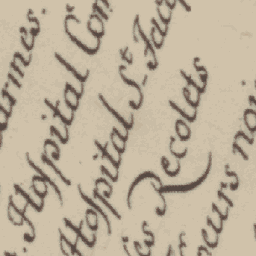 armes.
. Hoſpital Com
Hoſpital St. Jacq
es Recolets
oeurs noi